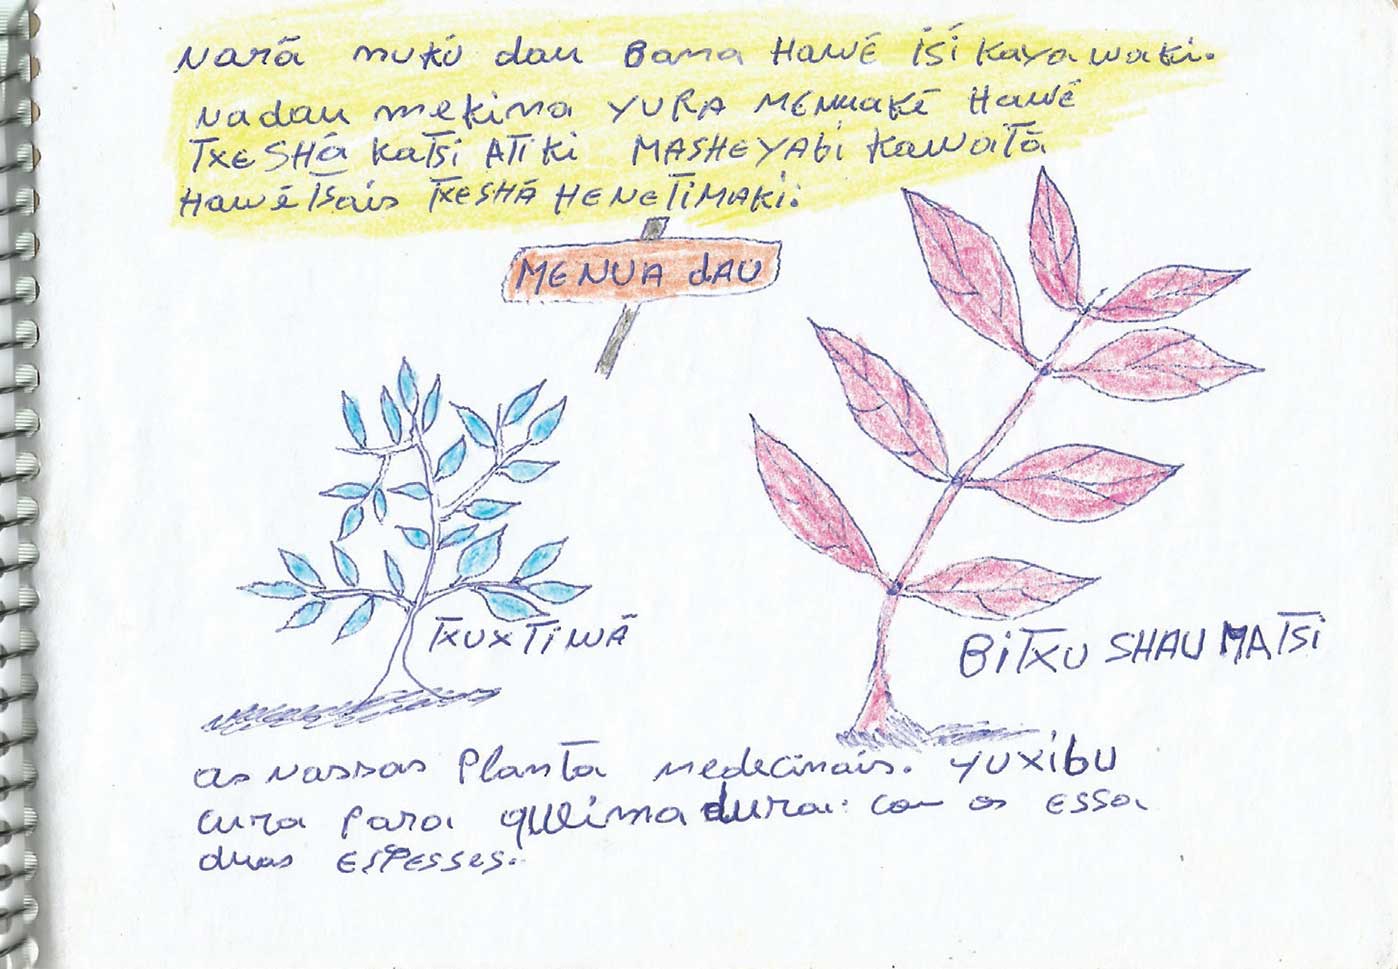 Narã mukú dau Bama Hawẽ isĩ Kaya waki.
Nadau mekima YURA MENUAKẼ HAWẼ
TXESHÁ KATSI ATIKI MASHEYABI KAWATÃ
HAWẼ Tsais TXESHÁ HENETIMAKI.
MENUA dAU
TXUXTIWÃ
BITXU SHAU MATSI
as Nassas Planta medecinais. YUXIBU
cura Para queimadura: com os essa
duas ESPESSES.